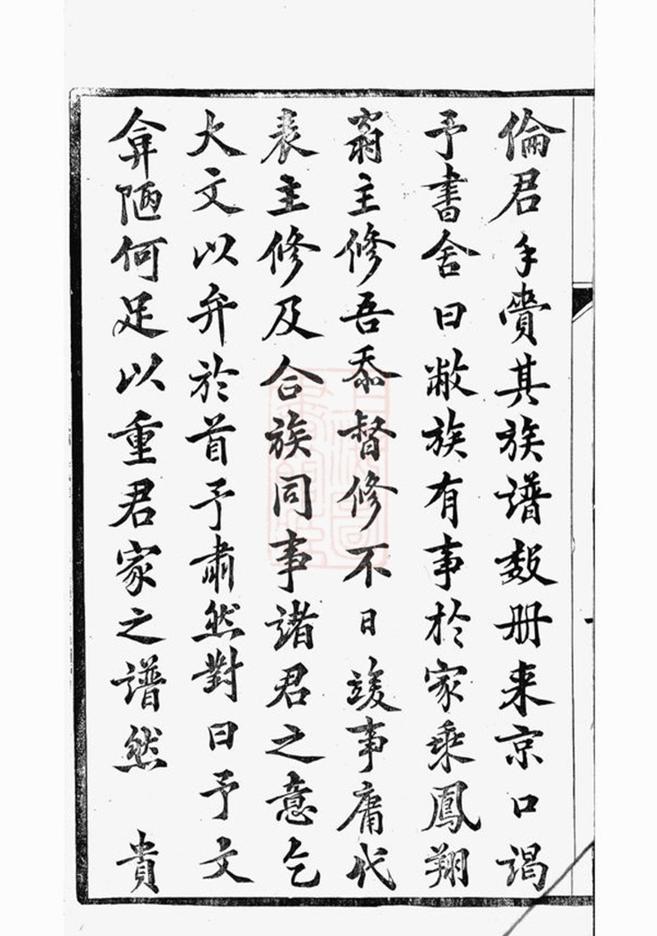 倫君手賫其族譜數册来京口謁
予書舍曰敝族有事於家乘鳳翔
翁主修吾忝督修不日竣事庸代
表主修及合族同事諸君之意乞
大文以弁於首予肅然對曰予文
弇陋何足以重君家之譜然　貴